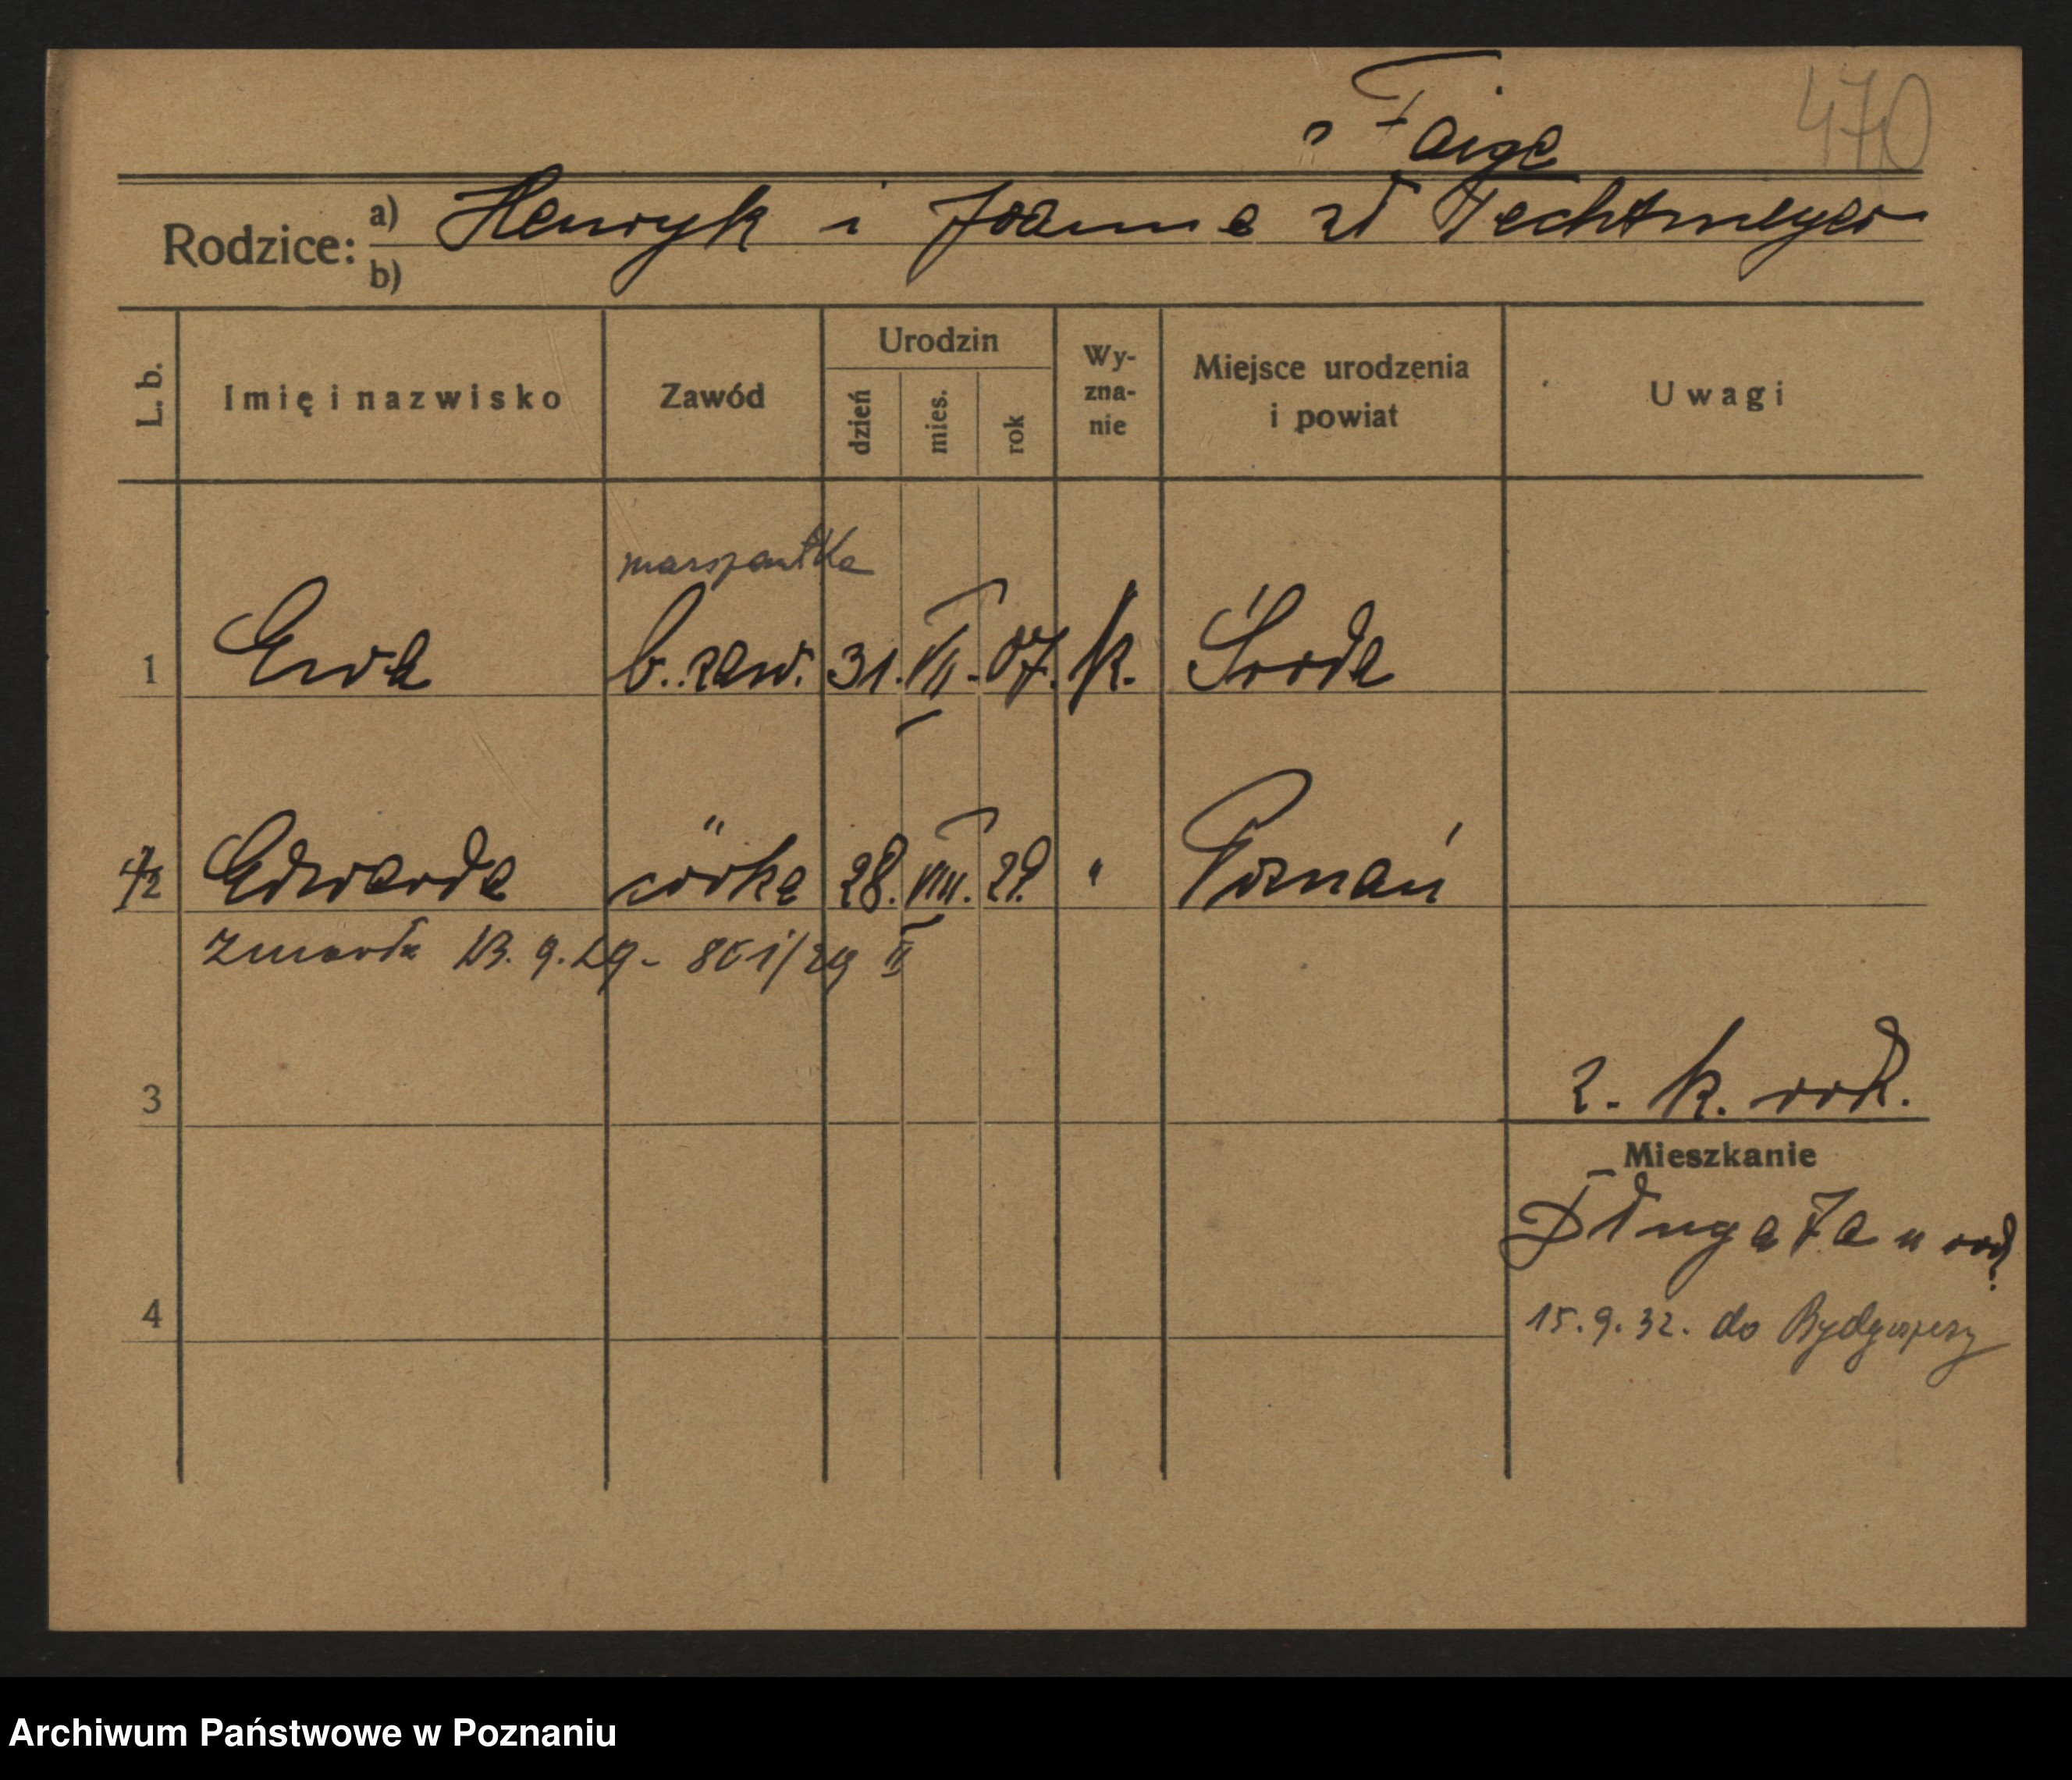 " Faige
470
Rodzice: a) Henryk i Joanna zd Techtmeyer
b)
L. b. Imię i nazwisko Zawód Urodzin dzień mies. rok Wyznanie Miejsce urodzenia i powiat Uwagi
manszantka
1 Ewa b. zaw. 31. VII. 07. k. Środa
2 Edwarda córka 28. VIII. 29. " Poznań
Zmarła 13. 9. 29 - 801/29 II
3
2. k. rod.
Mieszkanie
Długa 7a u rodz.
4
15. 9. 32. do Bydgoszczy
Archiwum Państwowe w Poznaniu